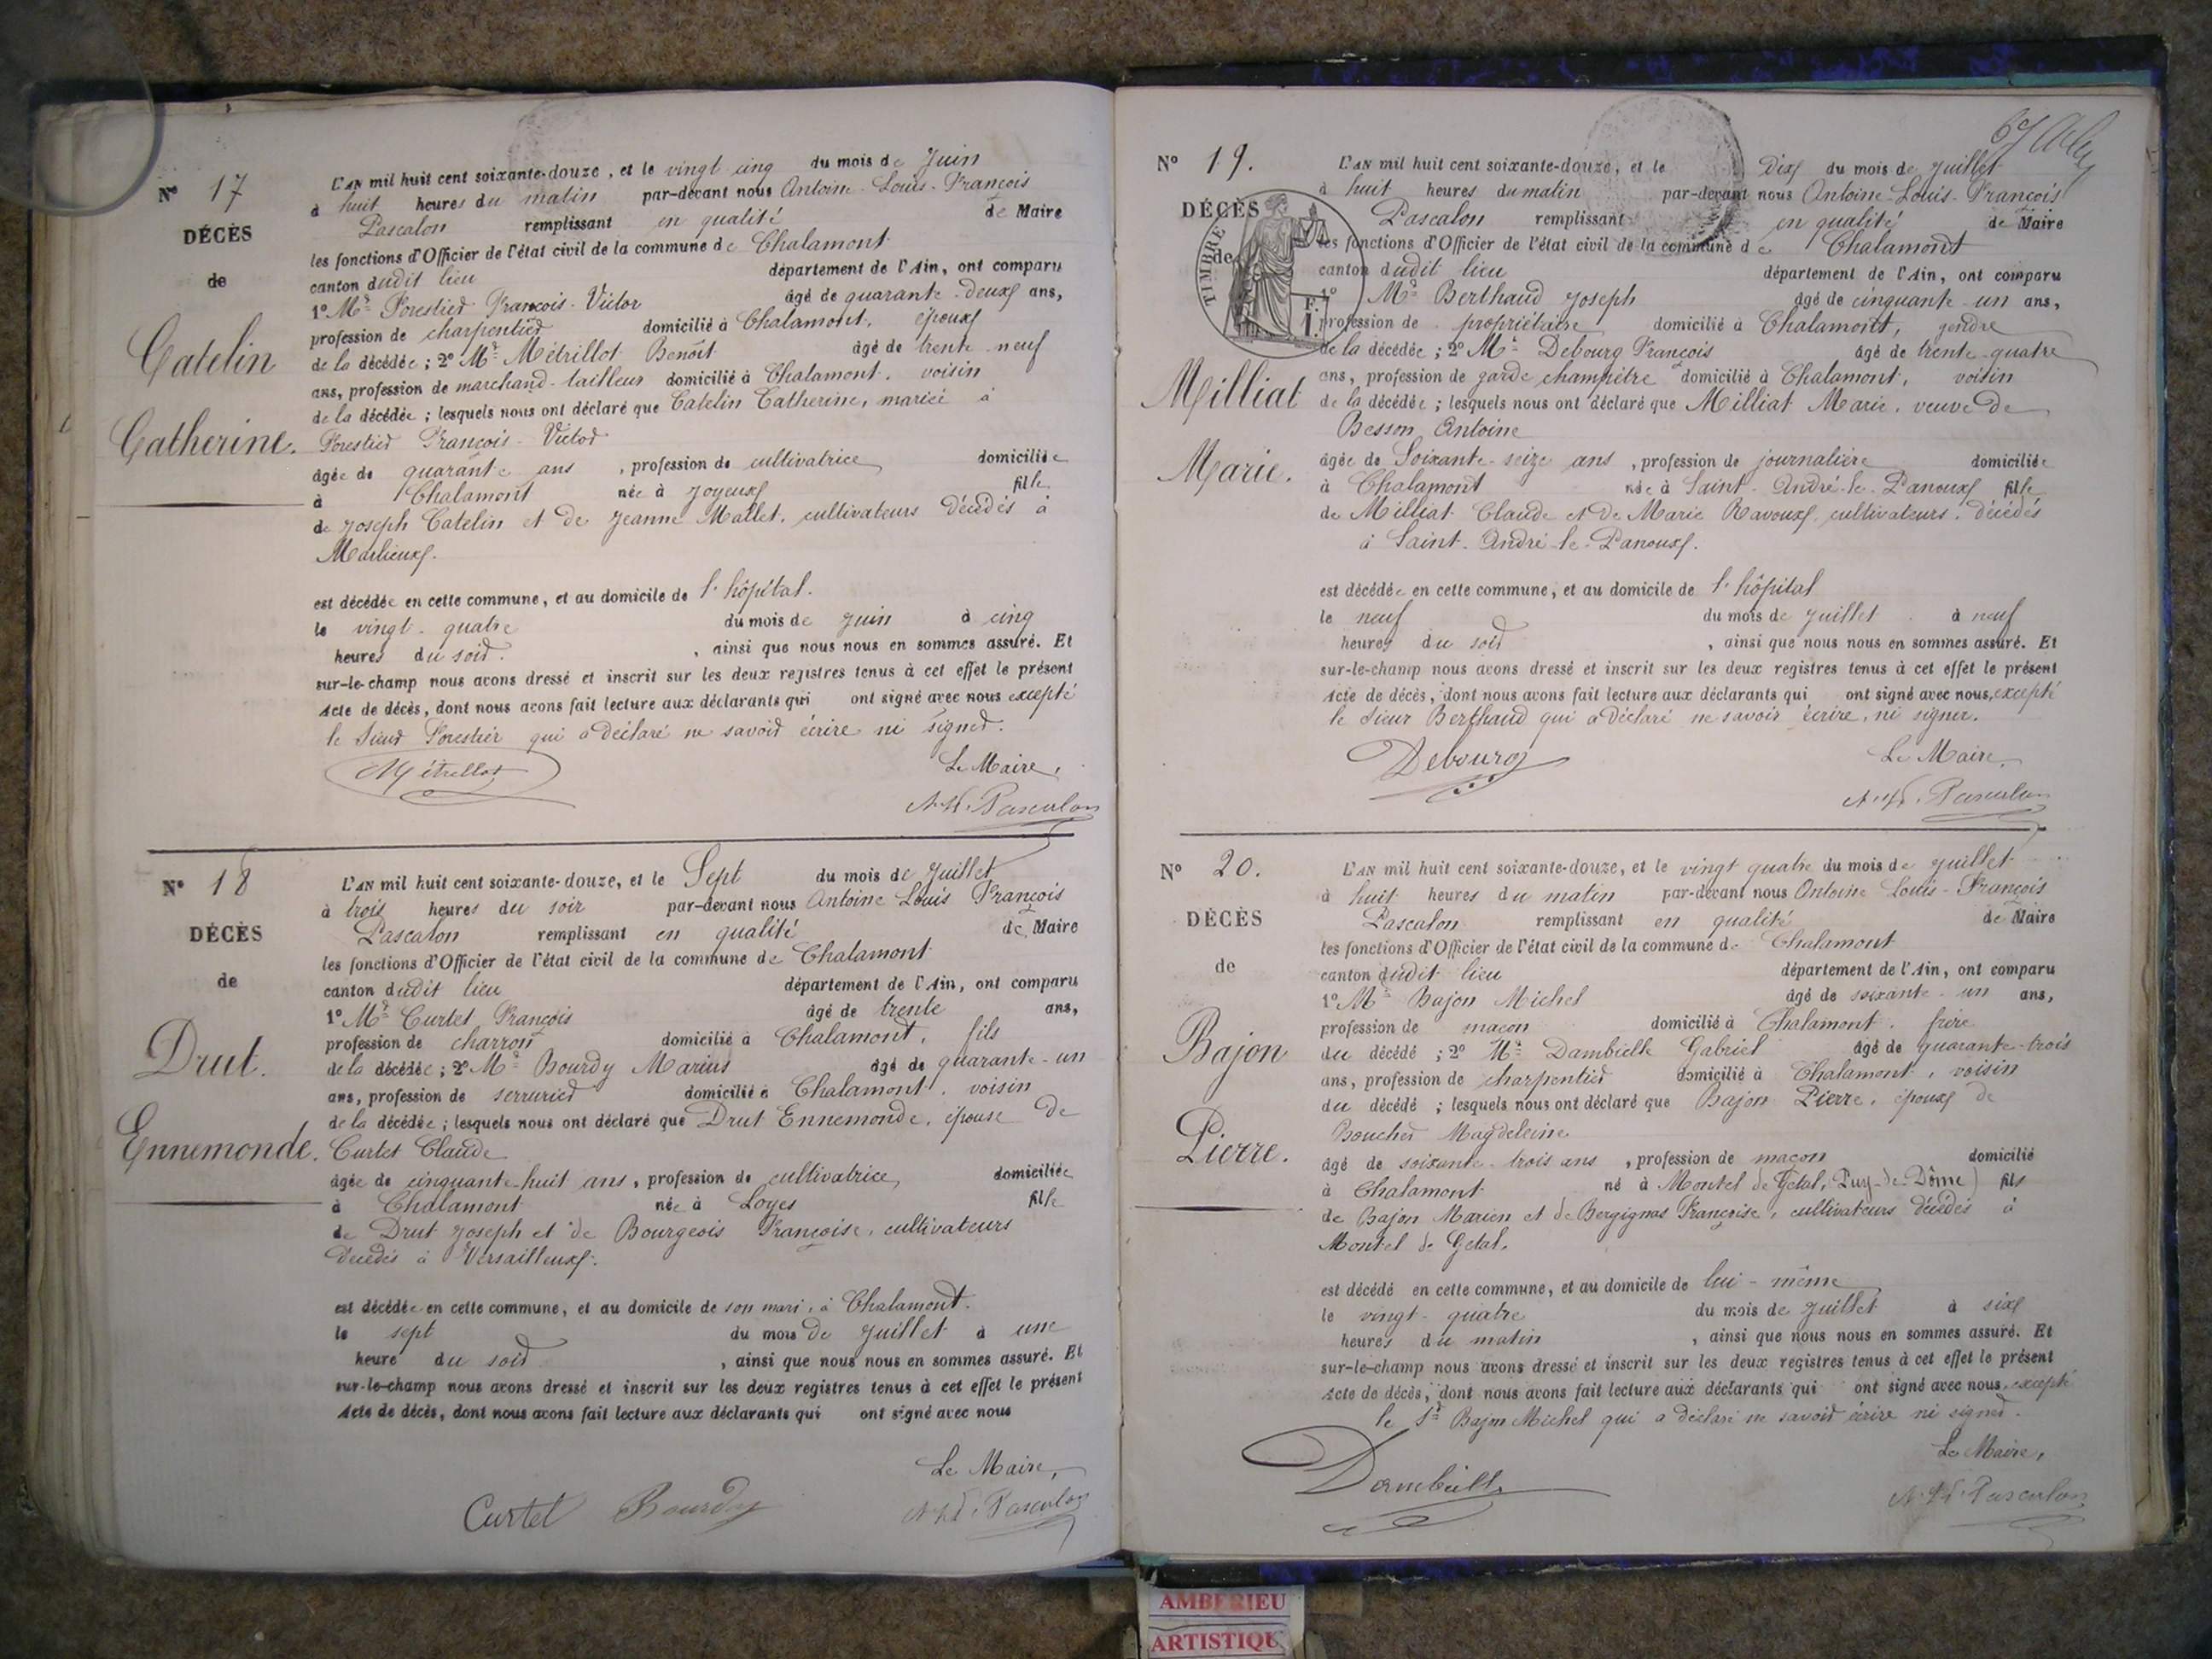 N° 17
DÉCÈS
de
Catelin
Catherine.
L'AN mil huit cent soixante-douze, et le vingt cinq du mois de Juin
à huit heures du matin par-devant nous Antoine-Louis-François
Pascalon remplissant en qualité de Maire
les fonctions d'Officier de l'état civil de la commune de Chalamont
canton dudit lieu département de l'Ain, ont comparu
1° Mr Forestier François-Victor âgé de quarante-deux ans,
profession de charpentier domicilié à Chalamont, époux
de la décédée ; 2° Mr Métrillot Benoît âgé de trente-neuf
ans, profession de marchand-tailleur domicilié à Chalamont, voisin
de la décédée ; lesquels nous ont déclaré que Catelin Catherine, mariée à
Forestier François-Victor
âgée de quarante ans, profession de cultivatrice domiciliée
à Chalamont née à Joyeux fille
de Joseph Catelin et de Jeanne Mallet, cultivateurs décédés à
Marlieux.
est décédée en cette commune, et au domicile de l'hôpital.
le vingt-quatre du mois de Juin à cinq
heures du soir. , ainsi que nous nous en sommes assuré. Et
sur-le-champ nous avons dressé et inscrit sur les deux registres tenus à cet effet le présent
Acte de décès, dont nous avons fait lecture aux déclarants qui ont signé avec nous excepté
le Sieur Forestier qui a déclaré ne savoir écrire ni signer.
Métrillot
Le Maire,
Pascalon
N° 18
DÉCÈS
de
Drut.
Ennemonde.
L'AN mil huit cent soixante-douze, et le Sept du mois de Juillet
à trois heures du soir par-devant nous Antoine Louis François
Pascalon remplissant en qualité de Maire
les fonctions d'Officier de l'état civil de la commune de Chalamont
canton dudit lieu département de l'Ain, ont comparu
1° Mr Curtet François âgé de trente ans,
profession de charron domicilié à Chalamont, fils
de la décédée ; 2° Mr Bourdy Marius âgé de quarante-un
ans, profession de serrurier domicilié à Chalamont, voisin
de la décédée ; lesquels nous ont déclaré que Drut Ennemonde, épouse de
Curtet Claude
âgée de cinquante-huit ans, profession de cultivatrice domiciliée
à Chalamont née à Loyes fille
de Drut Joseph et de Bourgeois Françoise, cultivateurs
décédés à Versailleux.
est décédée en cette commune, et au domicile de son mari, à Chalamont.
le sept du mois de Juillet à une
heure du soir , ainsi que nous nous en sommes assuré. Et
sur-le-champ nous avons dressé et inscrit sur les deux registres tenus à cet effet le présent
Acte de décès, dont nous avons fait lecture aux déclarants qui ont signé avec nous
Le Maire,
Curtet Bourdy Pascalon
N° 19.
DÉCÈS
de
TIMBRE
F.
1.
Milliat
Marie.
L'AN mil huit cent soixante-douze, et le Dix du mois de Juillet
à huit heures du matin par-devant nous Antoine-Louis-François
Pascalon remplissant en qualité de Maire
les fonctions d'Officier de l'état civil de la commune de Chalamont
canton dudit lieu département de l'Ain, ont comparu
1° Mr Berthaud Joseph âgé de cinquante-un ans,
profession de propriétaire domicilié à Chalamont, gendre
de la décédée ; 2° Mr Debourg François âgé de trente-quatre
ans, profession de garde champêtre domicilié à Chalamont, voisin
de la décédée ; lesquels nous ont déclaré que Milliat Marie, veuve de
Besson Antoine
âgée de Soixante-seize ans, profession de journalière domiciliée
à Chalamont née à Saint-André-le-Panoux fille
de Milliat Claude et de Marie Ravoux, cultivateurs, décédés
à Saint-André-le-Panoux.
est décédée en cette commune, et au domicile de l'hôpital
le neuf du mois de Juillet à neuf
heures du soir , ainsi que nous nous en sommes assuré. Et
sur-le-champ nous avons dressé et inscrit sur les deux registres tenus à cet effet le présent
Acte de décès, dont nous avons fait lecture aux déclarants qui ont signé avec nous, excepté
le Sieur Berthaud qui a déclaré ne savoir écrire, ni signer.
Debourg
Le Maire,
Pascalon
N° 20.
DÉCÈS
de
Bajon
Pierre.
L'AN mil huit cent soixante-douze, et le vingt quatre du mois de Juillet
à huit heures du matin par-devant nous Antoine Louis-François
Pascalon remplissant en qualité de Maire
les fonctions d'Officier de l'état civil de la commune de Chalamont
canton dudit lieu département de l'Ain, ont comparu
1° Mr Bajon Michel âgé de soixante-un ans,
profession de maçon domicilié à Chalamont, frère
du décédé ; 2° Mr Dambielle Gabriel âgé de quarante-trois
ans, profession de charpentier domicilié à Chalamont, voisin
du décédé ; lesquels nous ont déclaré que Bajon Pierre, époux de
Boucher Magdeleine
âgé de soixante-trois ans, profession de maçon domicilié
à Chalamont né à Montel de Gelat, Puy-de-Dôme) fils
de Bajon Marien et de Bergignas Françoise, cultivateurs décédés à
Montel de Gelat.
est décédé en cette commune, et au domicile de lui-même
le vingt-quatre du mois de Juillet à six
heures du matin , ainsi que nous nous en sommes assuré. Et
sur-le-champ nous avons dressé et inscrit sur les deux registres tenus à cet effet le présent
Acte de décès, dont nous avons fait lecture aux déclarants qui ont signé avec nous, excepté
le Sr Bajon Michel qui a déclaré ne savoir écrire ni signer.
Le Maire,
Dambielle
Pascalon
AMBERIEU
ARTISTIQU